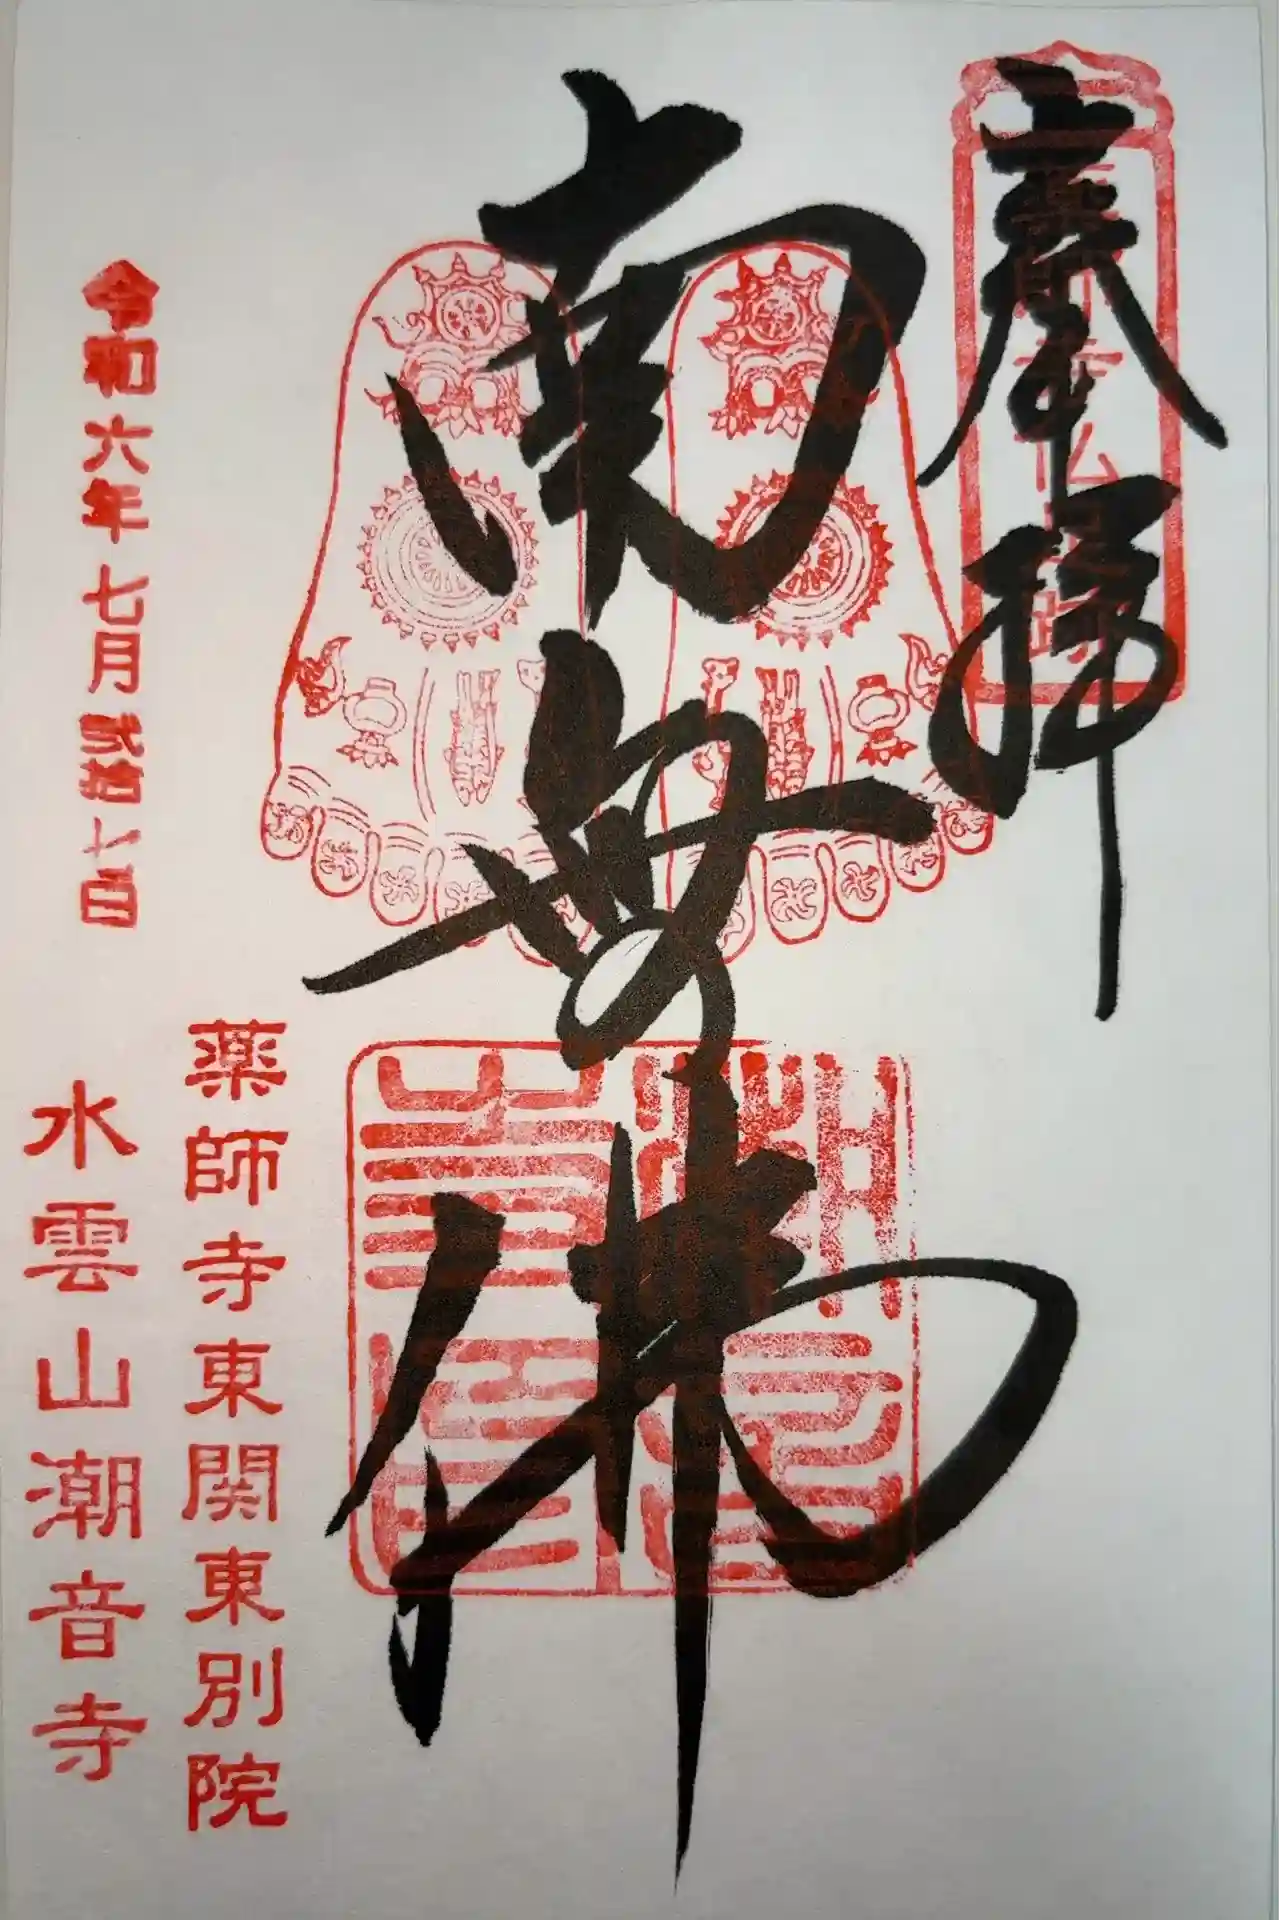 奉拝
薬師寺仏足跡
南無佛
薬師寺東関東別院
水雲山潮音寺
令和六年七月弐拾七日